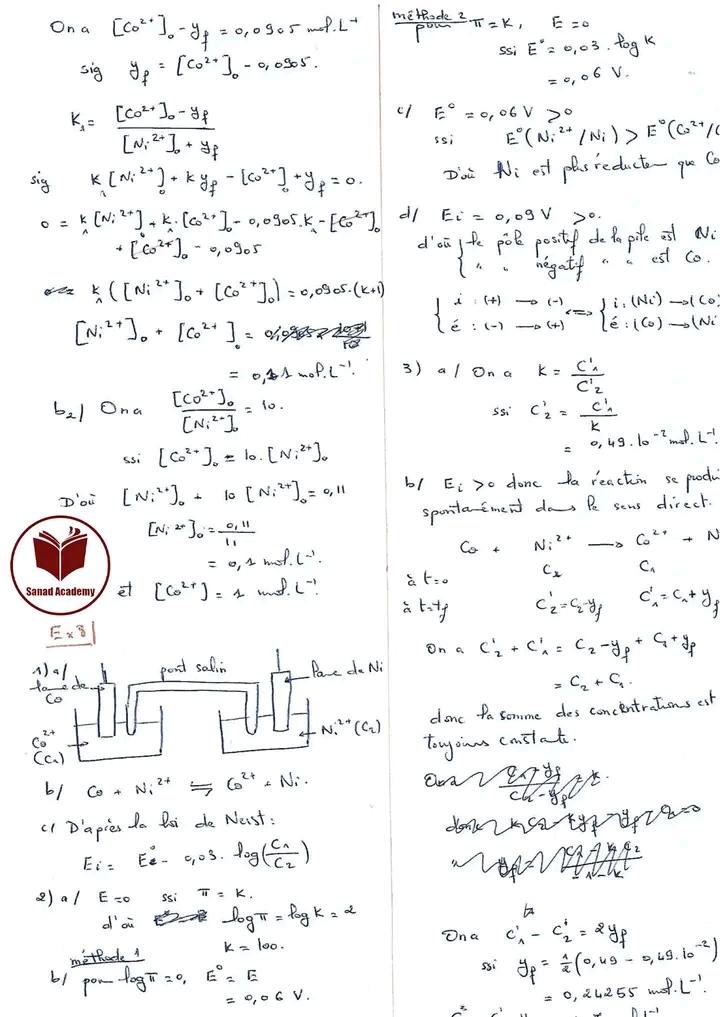 On a [Co²⁺]₀ - y_f = 0,0905 mol.L⁻¹
sig y_f = [Co²⁺]₀ - 0,0905.
K₁ = ([Co²⁺]₀ - y_f) / ([Ni²⁺]₀ + y_f)
sig K₁[Ni²⁺]₀ + K y_f - [Co²⁺]₀ + y_f = 0.
0 = K₁[Ni²⁺]₀ + K₁.[Co²⁺]₀ - 0,0905.K₁ - [Co²⁺]₀
+ [Co²⁺]₀ - 0,0905
K₁([Ni²⁺]₀ + [Co²⁺]₀) = 0,0905.(K+1)
[Ni²⁺]₀ + [Co²⁺]₀ =
= 0,11 mol.L⁻¹.
b₂/ On a [Co²⁺]₀ / [Ni²⁺]₀ = 10.
ssi [Co²⁺]₀ = 10.[Ni²⁺]₀
D'où [Ni²⁺]₀ + 10[Ni²⁺]₀ = 0,11
[Ni²⁺]₀ = 0,11 / 11
= 0,1 mol.L⁻¹.
et [Co²⁺] = 1 mol.L⁻¹.
Sanad Academy
Ex 3
1) a/
lame de Co
pont salin
lame de Ni
Co²⁺ (C₁)
Ni²⁺ (C₂)
b/ Co + Ni²⁺ ⇌ Co²⁺ + Ni.
c/ D'après la loi de Nerst :
Ei = E° - 0,03. log(C₁/C₂)
2) a/ E=0 ssi π = K.
d'où log π = log K = 2
K = 100.
méthode 1
b/ pour log π = 0, E° = E
= 0,06 V.
méthode 2
pour π = K, E = 0
ssi E° = 0,03 . log K
= 0,06 V.
c/ E° = 0,06 V > 0
ssi E°(Ni²⁺/Ni) > E°(Co²⁺/
D'où Ni est plus réducteur que Co
d/ Ei = 0,09 V > 0.
d'où le pôle positif de la pile est Ni
" " négatif " " est Co.
i : (+) → (-) ⇔ i : (Ni) → (Co)
é : (-) → (+) é : (Co) → (Ni
3) a/ On a K = C'₁ / C'₂
ssi C'₂ = C'₁ / K
= 0,49.10⁻² mol.L⁻¹
b/ Ei > 0 donc la réaction se produi
spontanément dans le sens direct.
Co + Ni²⁺ → Co²⁺ + N
à t=0 C₂ C₁
à t=tf C'₂ = C₂ - y_f C'₁ = C₁ + y_f
On a C'₂ + C'₁ = C₂ - y_f + C₁ + y_f
= C₂ + C₁.
donc la somme des concentrations est
toujours constante.
On a C'₁ - C'₂ = 2y_f
ssi y_f = ½(0,49 - 0,49.10⁻²)
= 0,24255 mol.L⁻¹.